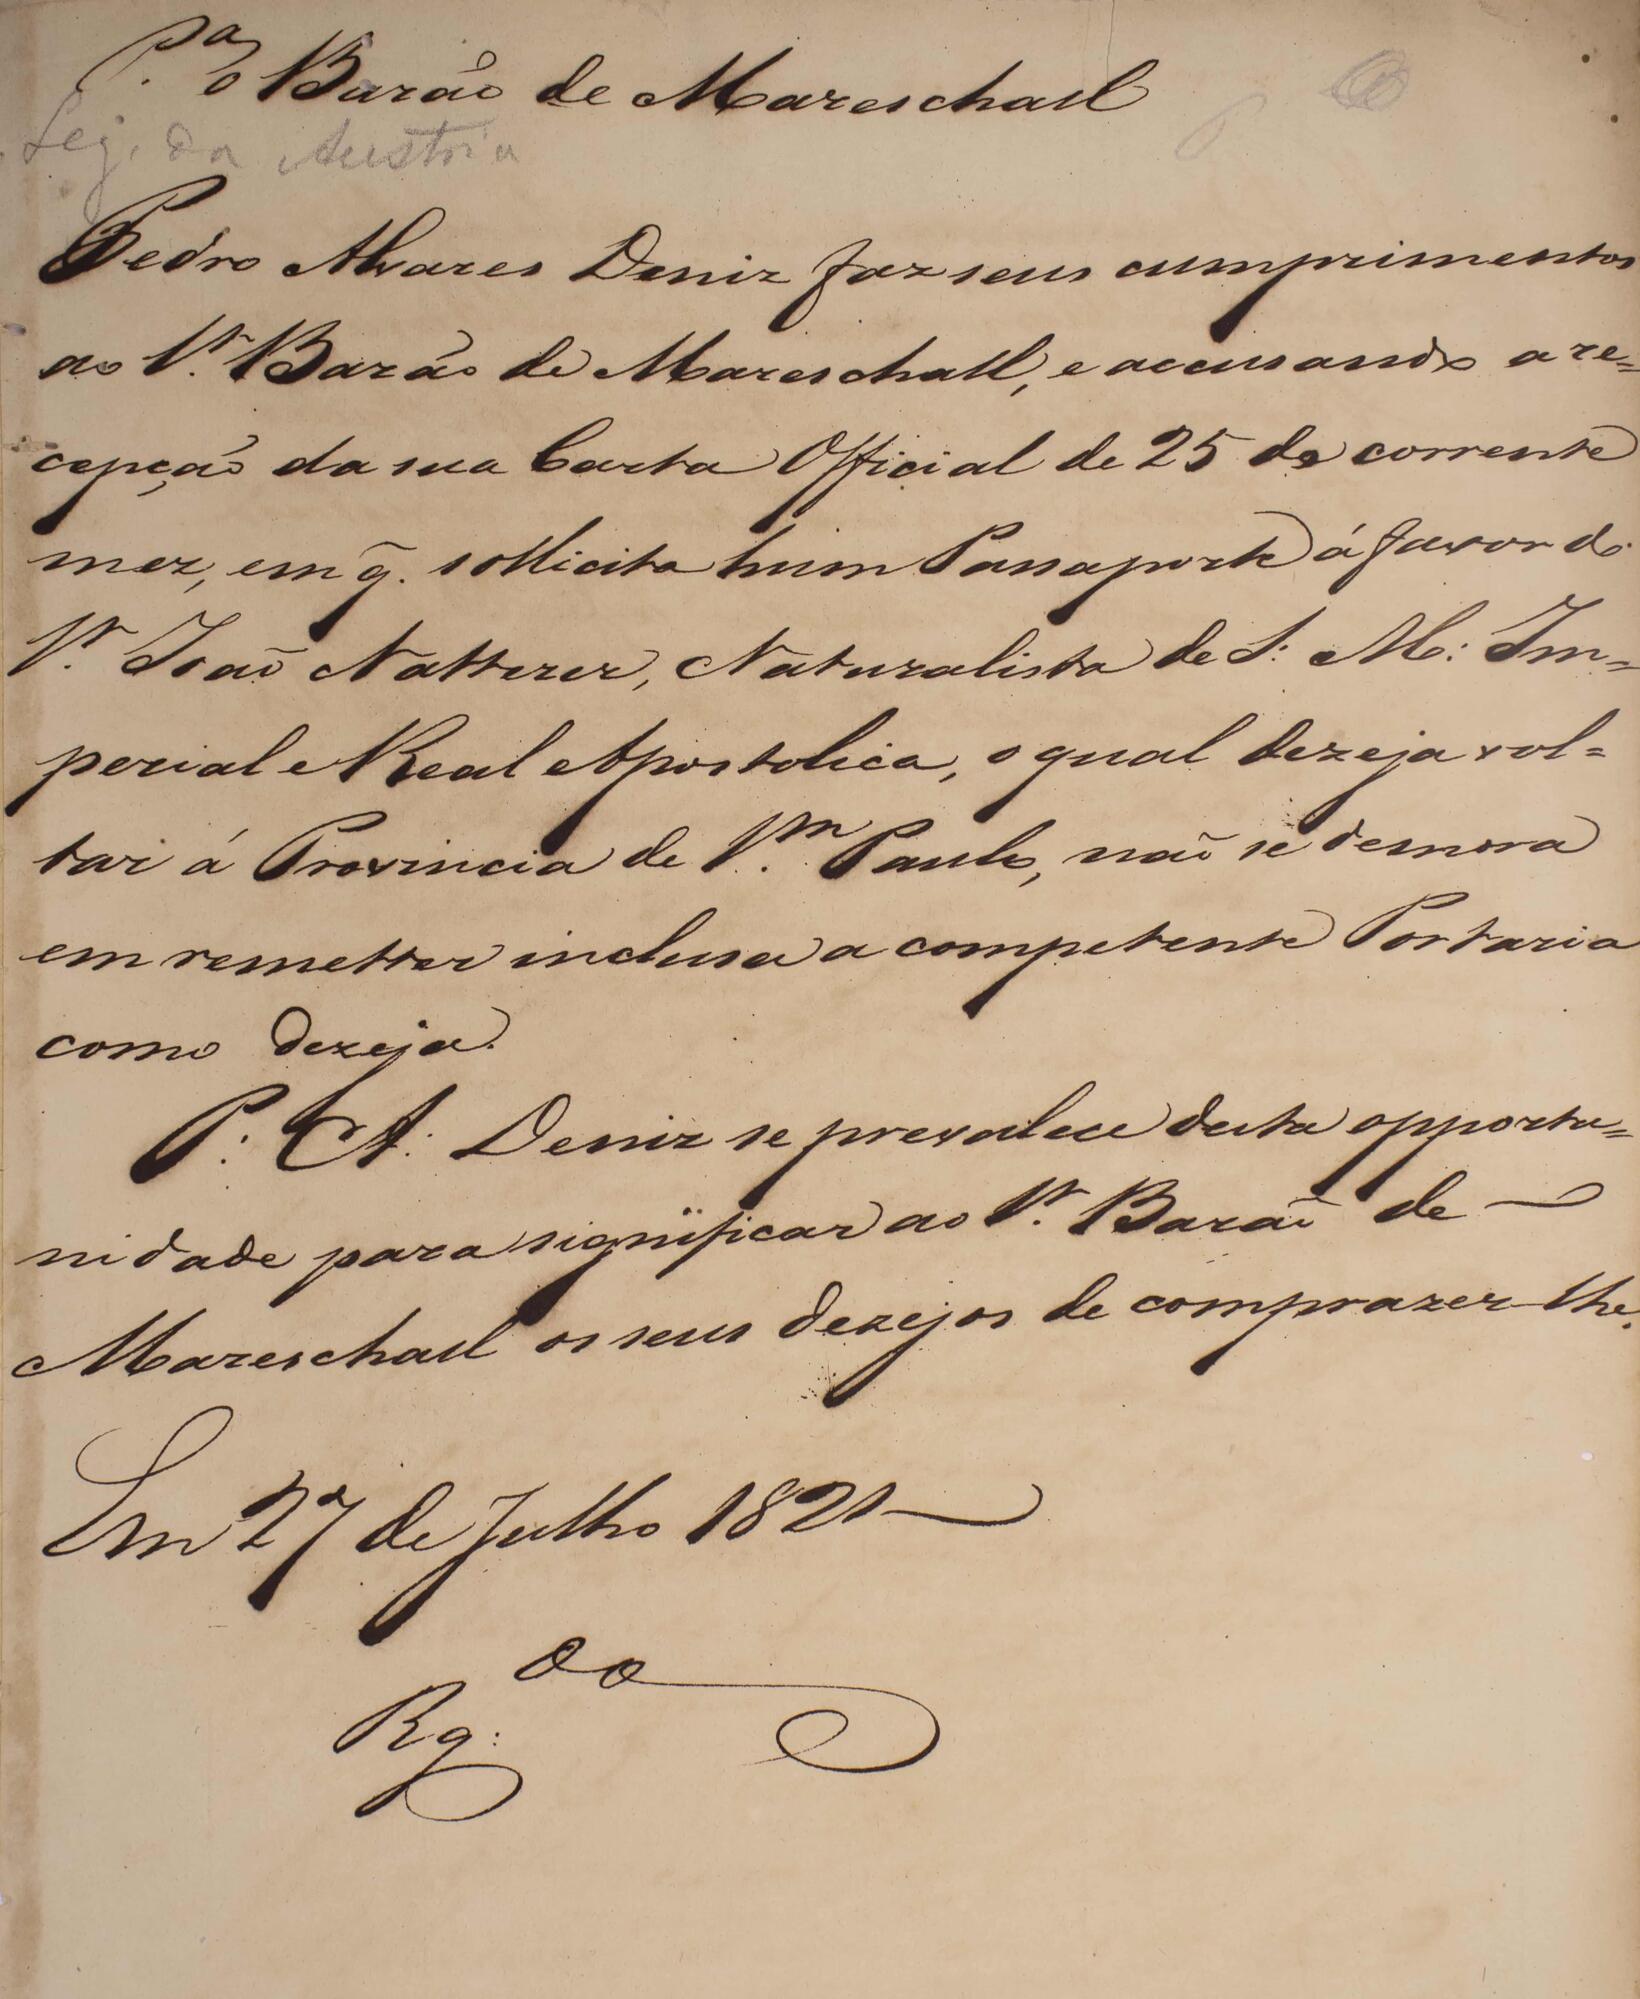 P.ª o Barão de Mareschall
Leg. da Austria
Pedro Alvares Deniz faz seus cumprimentos
ao S.r Barão de Mareschall, e accusando a re=
cepção da sua Carta Official de 25 do corrente
mez, em q̃. sollicita hum Passaporte á favor do
S.r João Natterer, Naturalista de S: M: Im=
perial e Real Apostolica, o qual dezeja vol=
tar á Provincia de S.m Paulo, não se demora
em remetter inclusa a competente Portaria
como dezeja.
P: A: Deniz se prevalece desta opportu=
nidade para significar ao S.r Barão de
Mareschall os seus dezejos de comprazer-lhe.
Em 27 de Julho 1821
Rg:do